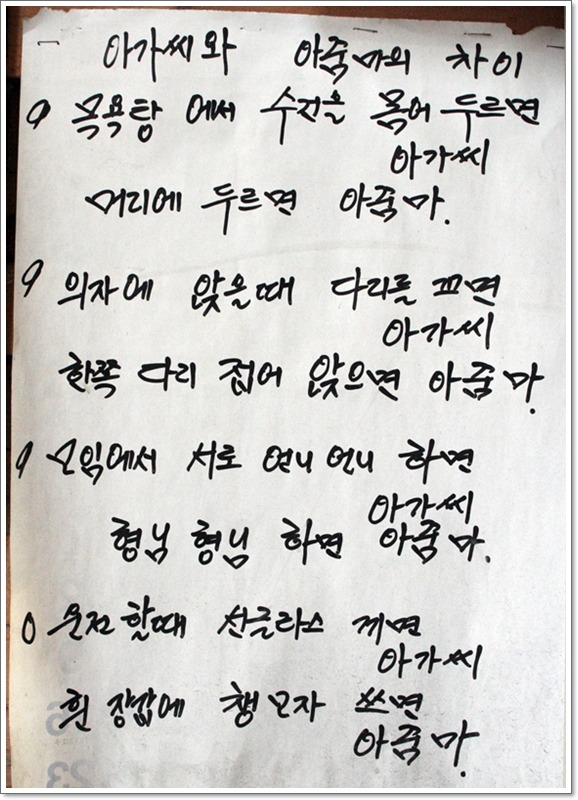 아가씨와 아줌마의 차이
목욕탕 에서 수건을 몸에 두르면
아가씨
머리에 두르면 아줌마.
의자에 앉을때 다리를 꼬면
아가씨
한쪽 다리 접어 앉으면 아줌마.
모임에서 서로 언니 언니 하면
아가씨
형님 형님 하면 아줌마.
운전 할때 선글라스 끼면
아가씨
흰 장갑에 챙모자 쓰면
아줌마.